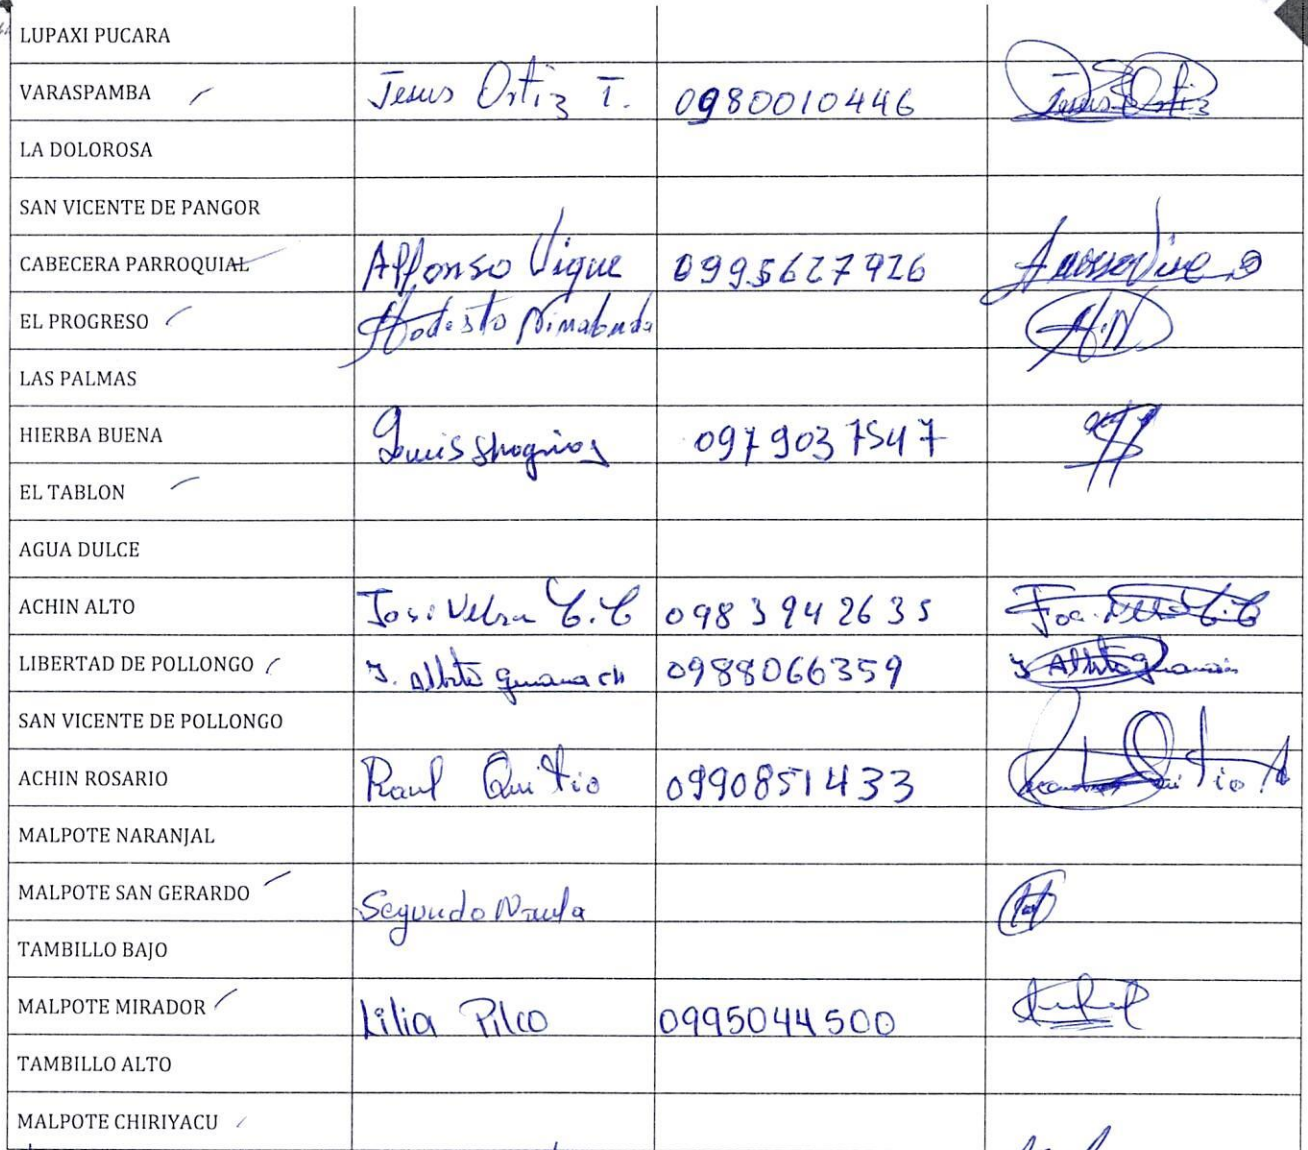 LUPAXI PUCARA
VARASPAMBA Jesus Ortiz T. 0980010446 Jesus Ortiz
LA DOLOROSA
SAN VICENTE DE PANGOR
CABECERA PARROQUIAL Alfonso Vique 0995627926
EL PROGRESO
LAS PALMAS
HIERBA BUENA 0979037547
EL TABLON
AGUA DULCE
ACHIN ALTO 0983942635
LIBERTAD DE POLLONGO 0988066359
SAN VICENTE DE POLLONGO
ACHIN ROSARIO Raul Quitio 0990851433
MALPOTE NARANJAL
MALPOTE SAN GERARDO Segundo Naula
TAMBILLO BAJO
MALPOTE MIRADOR Lilia Pilco 0995044500
TAMBILLO ALTO
MALPOTE CHIRIYACU